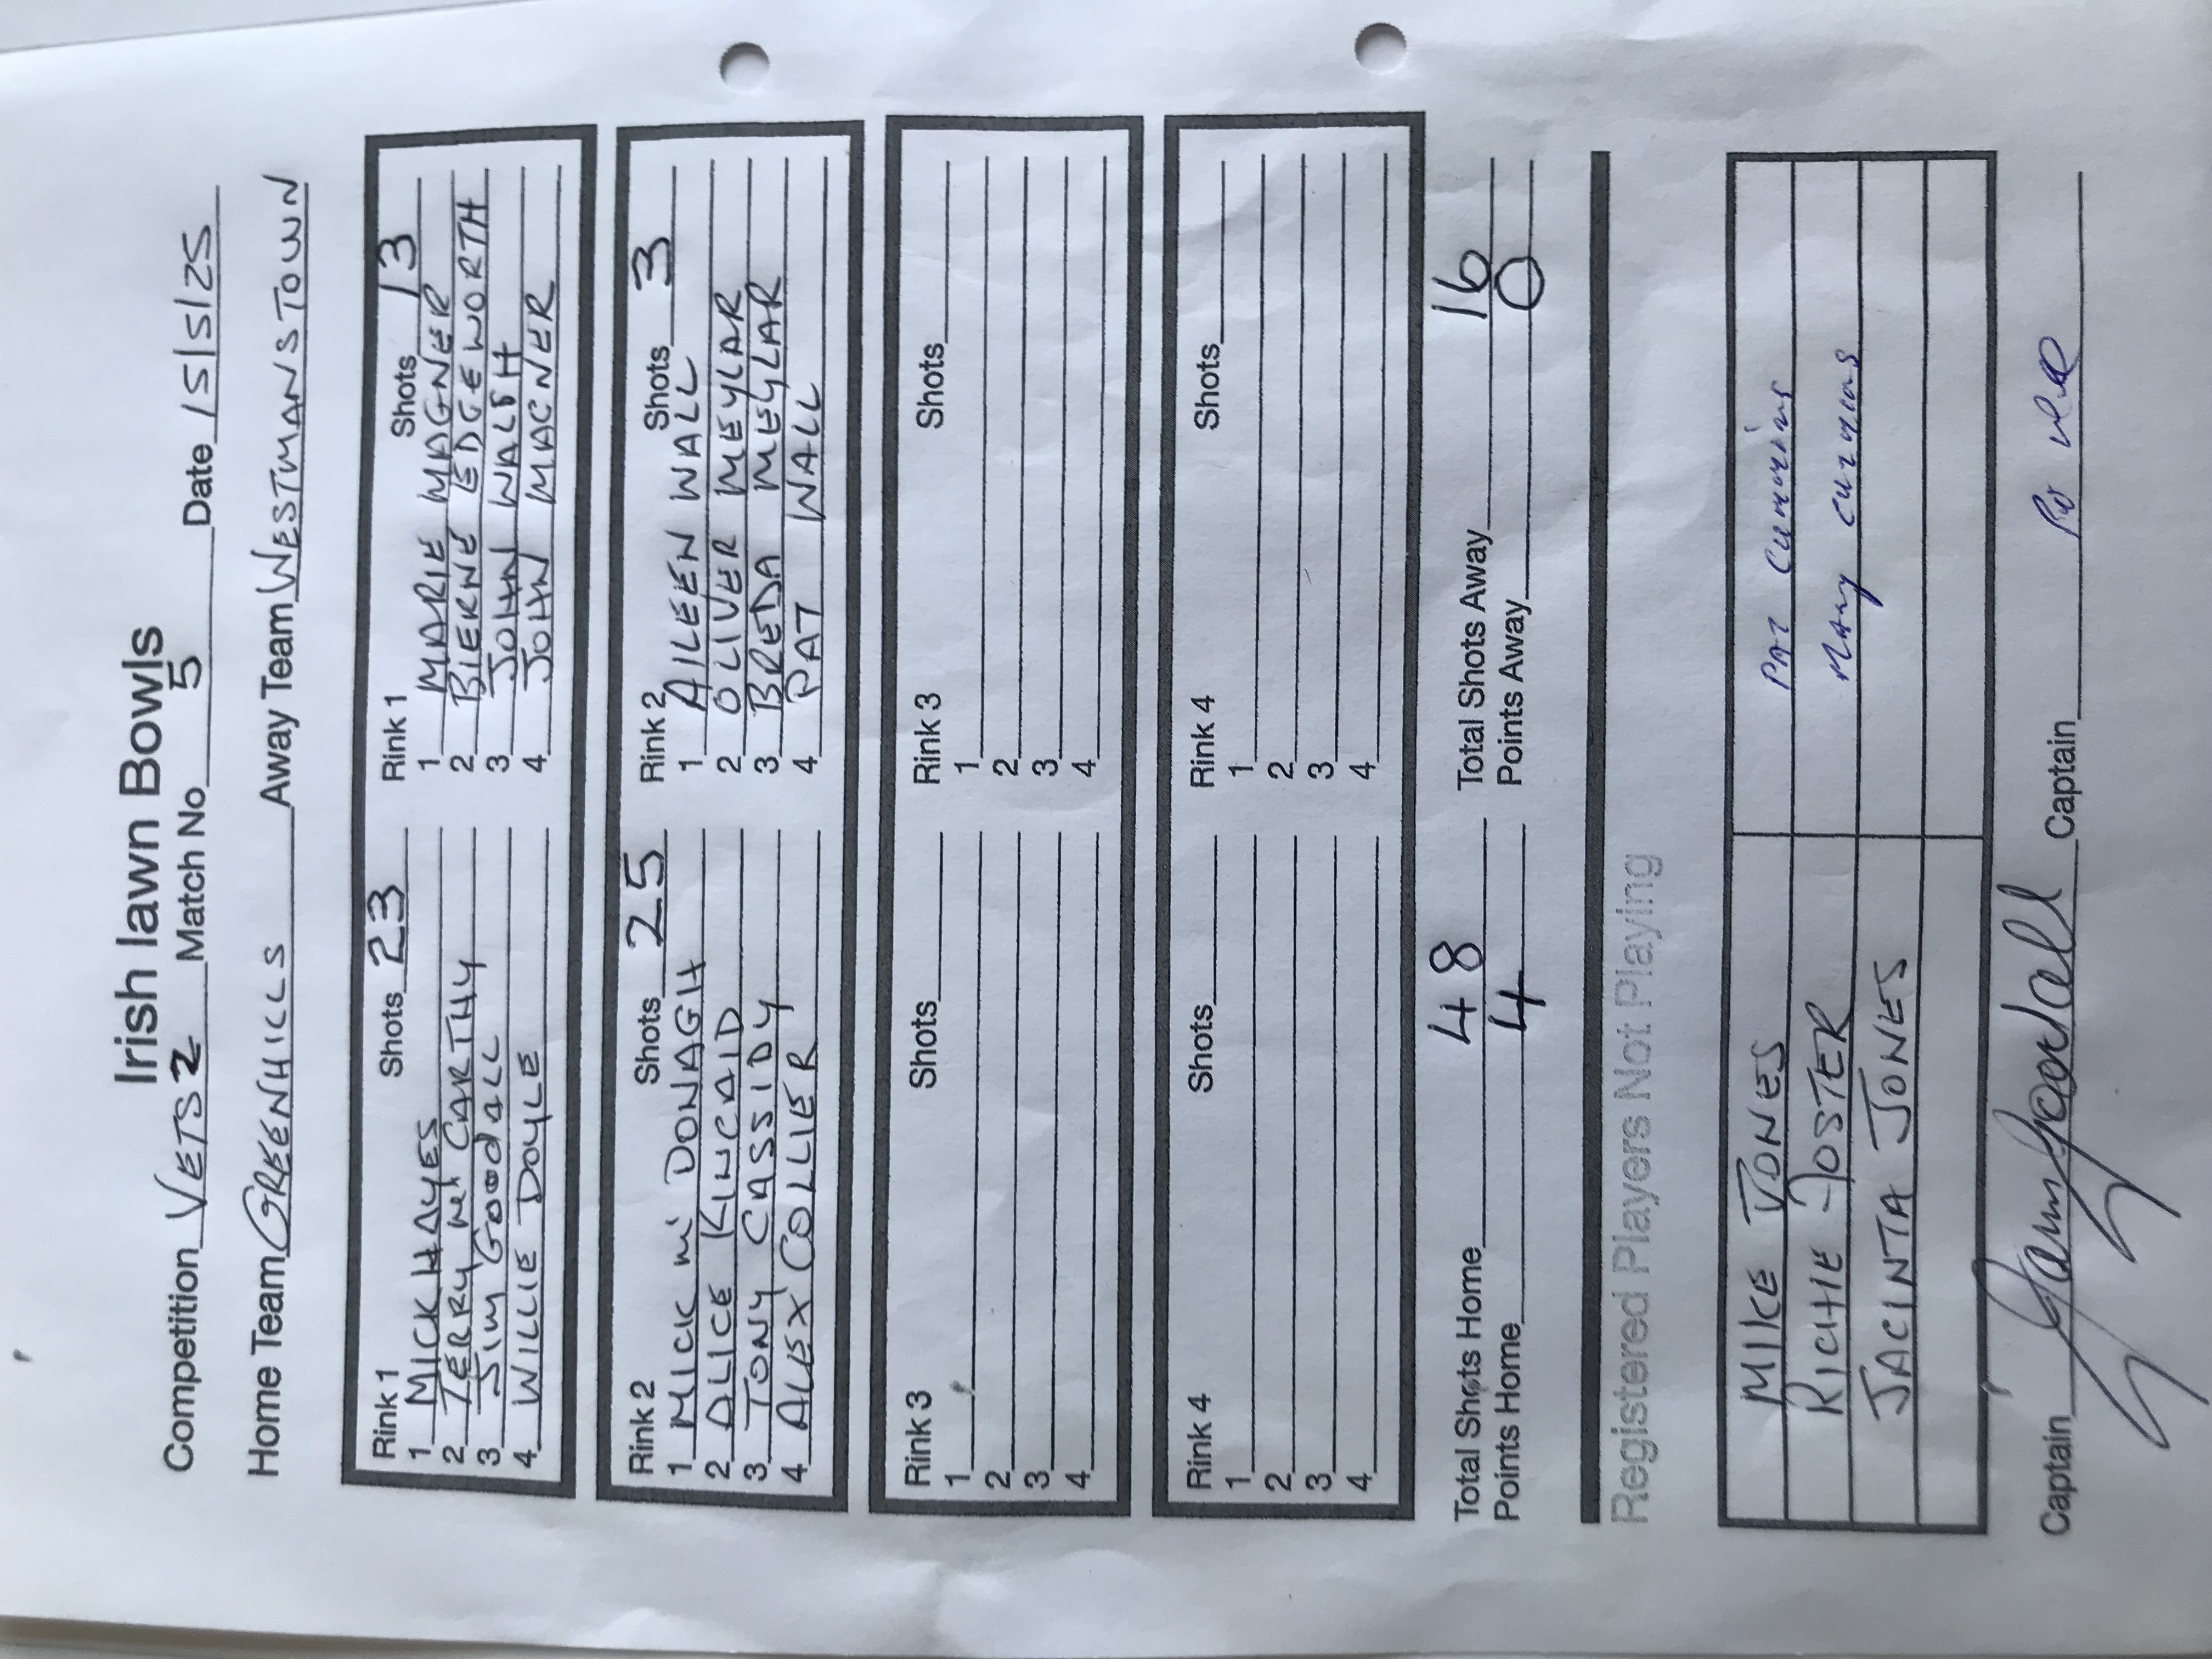 Irish lawn Bowls
Competition VETS 2 Match No 5 Date 15/5/25
Home Team GREENHILLS Away Team WESTMANSTOWN
Rink 1 Shots 23 Rink 1 Shots 13
1 MICK HAYES 1 MARIE MAGNER
2 TERRY Mc CARTHY 2 BIERNE EDGEWORTH
3 JIM GOODALL 3 JOHN WALSH
4 WILLIE DOYLE 4 JOHN MAGNER
Rink 2 Shots 25 Rink 2 Shots 3
1 MICK Mc DONAGH 1 AILEEN WALL
2 ALICE KINCAID 2 OLIVER MEYLAR
3 TONY CASSIDY 3 BREDA MEYLAR
4 ALEX COLLIER 4 PAT WALL
Rink 3 Shots Rink 3 Shots
1 1
2 2
3 3
4 4
Rink 4 Shots Rink 4 Shots
1 1
2 2
3 3
4 4
Total Shots Home 48 Total Shots Away 16
Points Home 4 Points Away 0
Registered Players Not Playing
MIKE JONES PAT Cummins
RICHIE FOSTER Mary Cummins
JACINTA JONES
Captain Captain